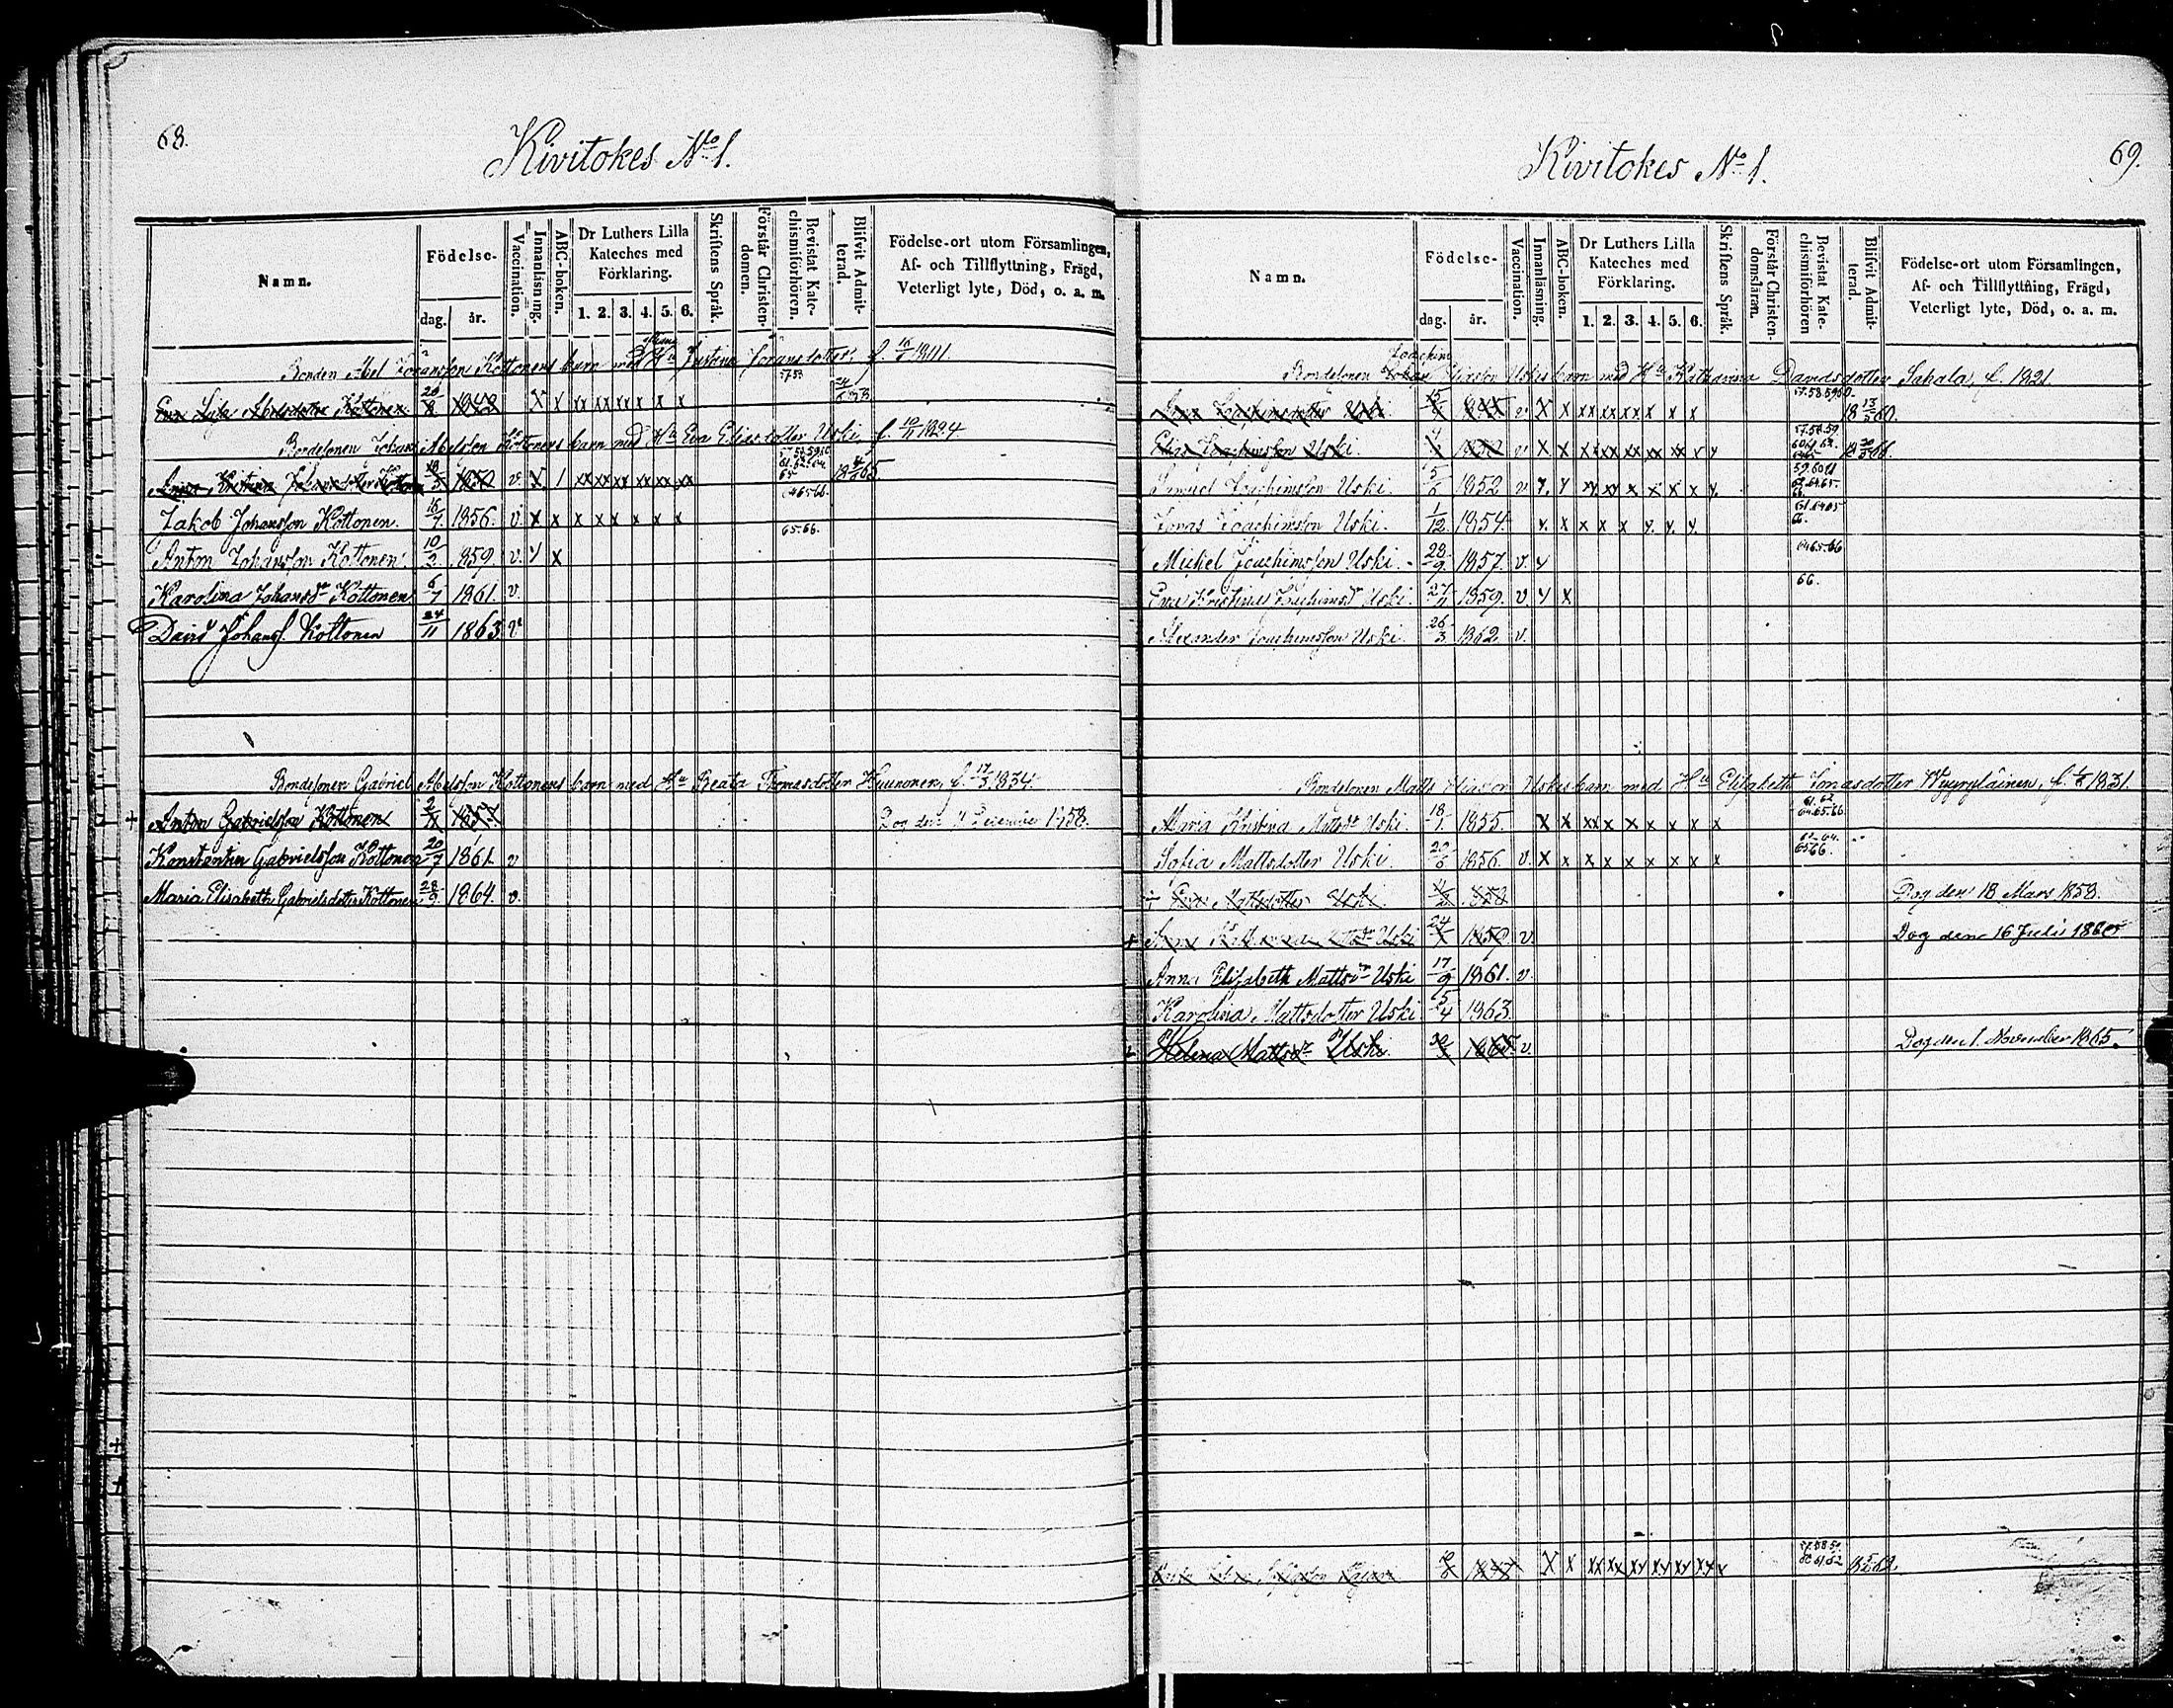 68.
Kivitokes No 1.
Namn.
Födelse-
dag.
år.
Vaccination.
Innanläsning.
ABC-boken.
Dr Luthers Lilla
Kateches med
Förklaring.
1. 2. 3. 4. 5. 6.
Skriftens Språk.
Förstår Christen-
domen.
Bevistat Kate-
chismiförhören.
Blifvit Admit-
terad.
Födelse-ort utom Församlingen,
Af- och Tillflyttning, Frägd,
Veterligt lyte, Död, o. a. m.
Bonden Abel Kottonens barn med Hu Justina f. 16/ 1811.
57.58
Eva Lisa Abelsdotter Kottonen X X xx xx xx x x x
Bondesonen Johan Abelsson Kottonens barn med Hu Eva Eliaedotter Uski, f. 10/11 1824.
Anna Kristina Johansdotter Kottonen 1850 v. X / xx xx xx xx xx xx 65
Jakob Johansson Kottonen. 16/7 1856. v. x x x x x x x x 64 65 66.
Anton Johansson Kottonen 10/2 1859. v. y x 65.66.
Karolina Johansdr Kottonen 6/7 1861. v.
David Johanss. Kottonen 24/11 1863 v.
Bondesonen Gabriel Abelsson Kottonens barn med Hu Beata Thomasdotter Kuunonen, f. 17/3 1834.
+ Anton Gabrielsson Kottonen 1857. Dog den December 1858.
Konstantin Gabrielsson Kottonen 20/7 1861 v
Maria Elisabeth Gabrielsdotter Kottonen 28/9 1864. v.
69.
Kivitokes No 1.
Namn.
Födelse-
dag.
år.
Vaccination.
Innanläsning.
ABC-boken.
Dr Luthers Lilla
Kateches med
Förklaring.
1. 2. 3. 4. 5. 6.
Skriftens Språk.
Förstår Christen-
domsläran.
Bevistat Kate-
chismiförhören
Blifvit Admit-
terad.
Födelse-ort utom Församlingen,
Af- och Tillflyttning, Frägd,
Veterligt lyte, Död, o. a. m.
Joachim
Bondesonen Johan Eliasson Uskis barn med Hu Katharina Davidsdotter Sahala, f. 1821.
Joachimsdotter Uski v X X xx xx xx x x x 57.58.59.60. 18 13/5 60.
Elias Joachimsson Uski. v X X 57.58.59
Samuel Joachimsson Uski. 5/6 1852 v y. y xy xy x x x x y. 59.60.61
Jonas Joachimsson Uski. 1/12 1854 y. x x x x y. y. y.
Michel Joachimsson Uski. 28/9. 1857. v. y 64.65.66
Eva Kristina Joachimsdr Uski. 27/11 1859. v. y x 66.
Alexander Joachimsson Uski. 26/3. 1862. v.
Bondesonen Matts Eliasson Uskis barn med Hu Elisabeth Jonasdotter f. 1831.
Maria Kristina Mattsdr Uski. 18/1. 1855. X X xx x x x x x x 61.62 64.65.66.
Sofia Mattsdotter Uski. 29/6 1856. v. X x x x x x x x x 65 66.
Eva Mattsdotter Uski. 11/2 1858 Dog den 18 Mars 1858.
+ Anna Katharina Mattsdr Uski 24/ 1859 v. Dog den 16 Juli 1860
Anna Elisabeth Mattsdr Uski 17/9 1861. v.
Karolina Mattsdotter Uski 5/4 1863.
Helena Mattsdr Uski 1865 v. Dog den 1. November 1865.
X X xx xx xy xy xy xy y 57.58.59 60 61 62